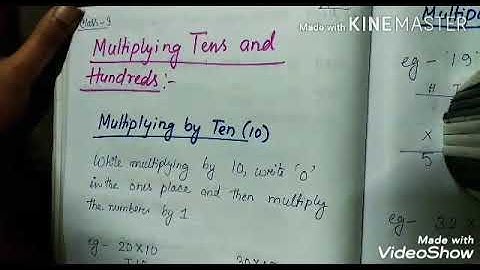 Math-3
Multiplying Tens and
Hundreds:-
Multiplying by Ten (10)
While multiplying by 10, write '0'
in the ones place and then multiply
the numbers by 1
eg- 20 × 10
30×10
Made with KINEMASTER
eg - '19'
H
×
5
eg - 32 ×
Made with
VideoShow